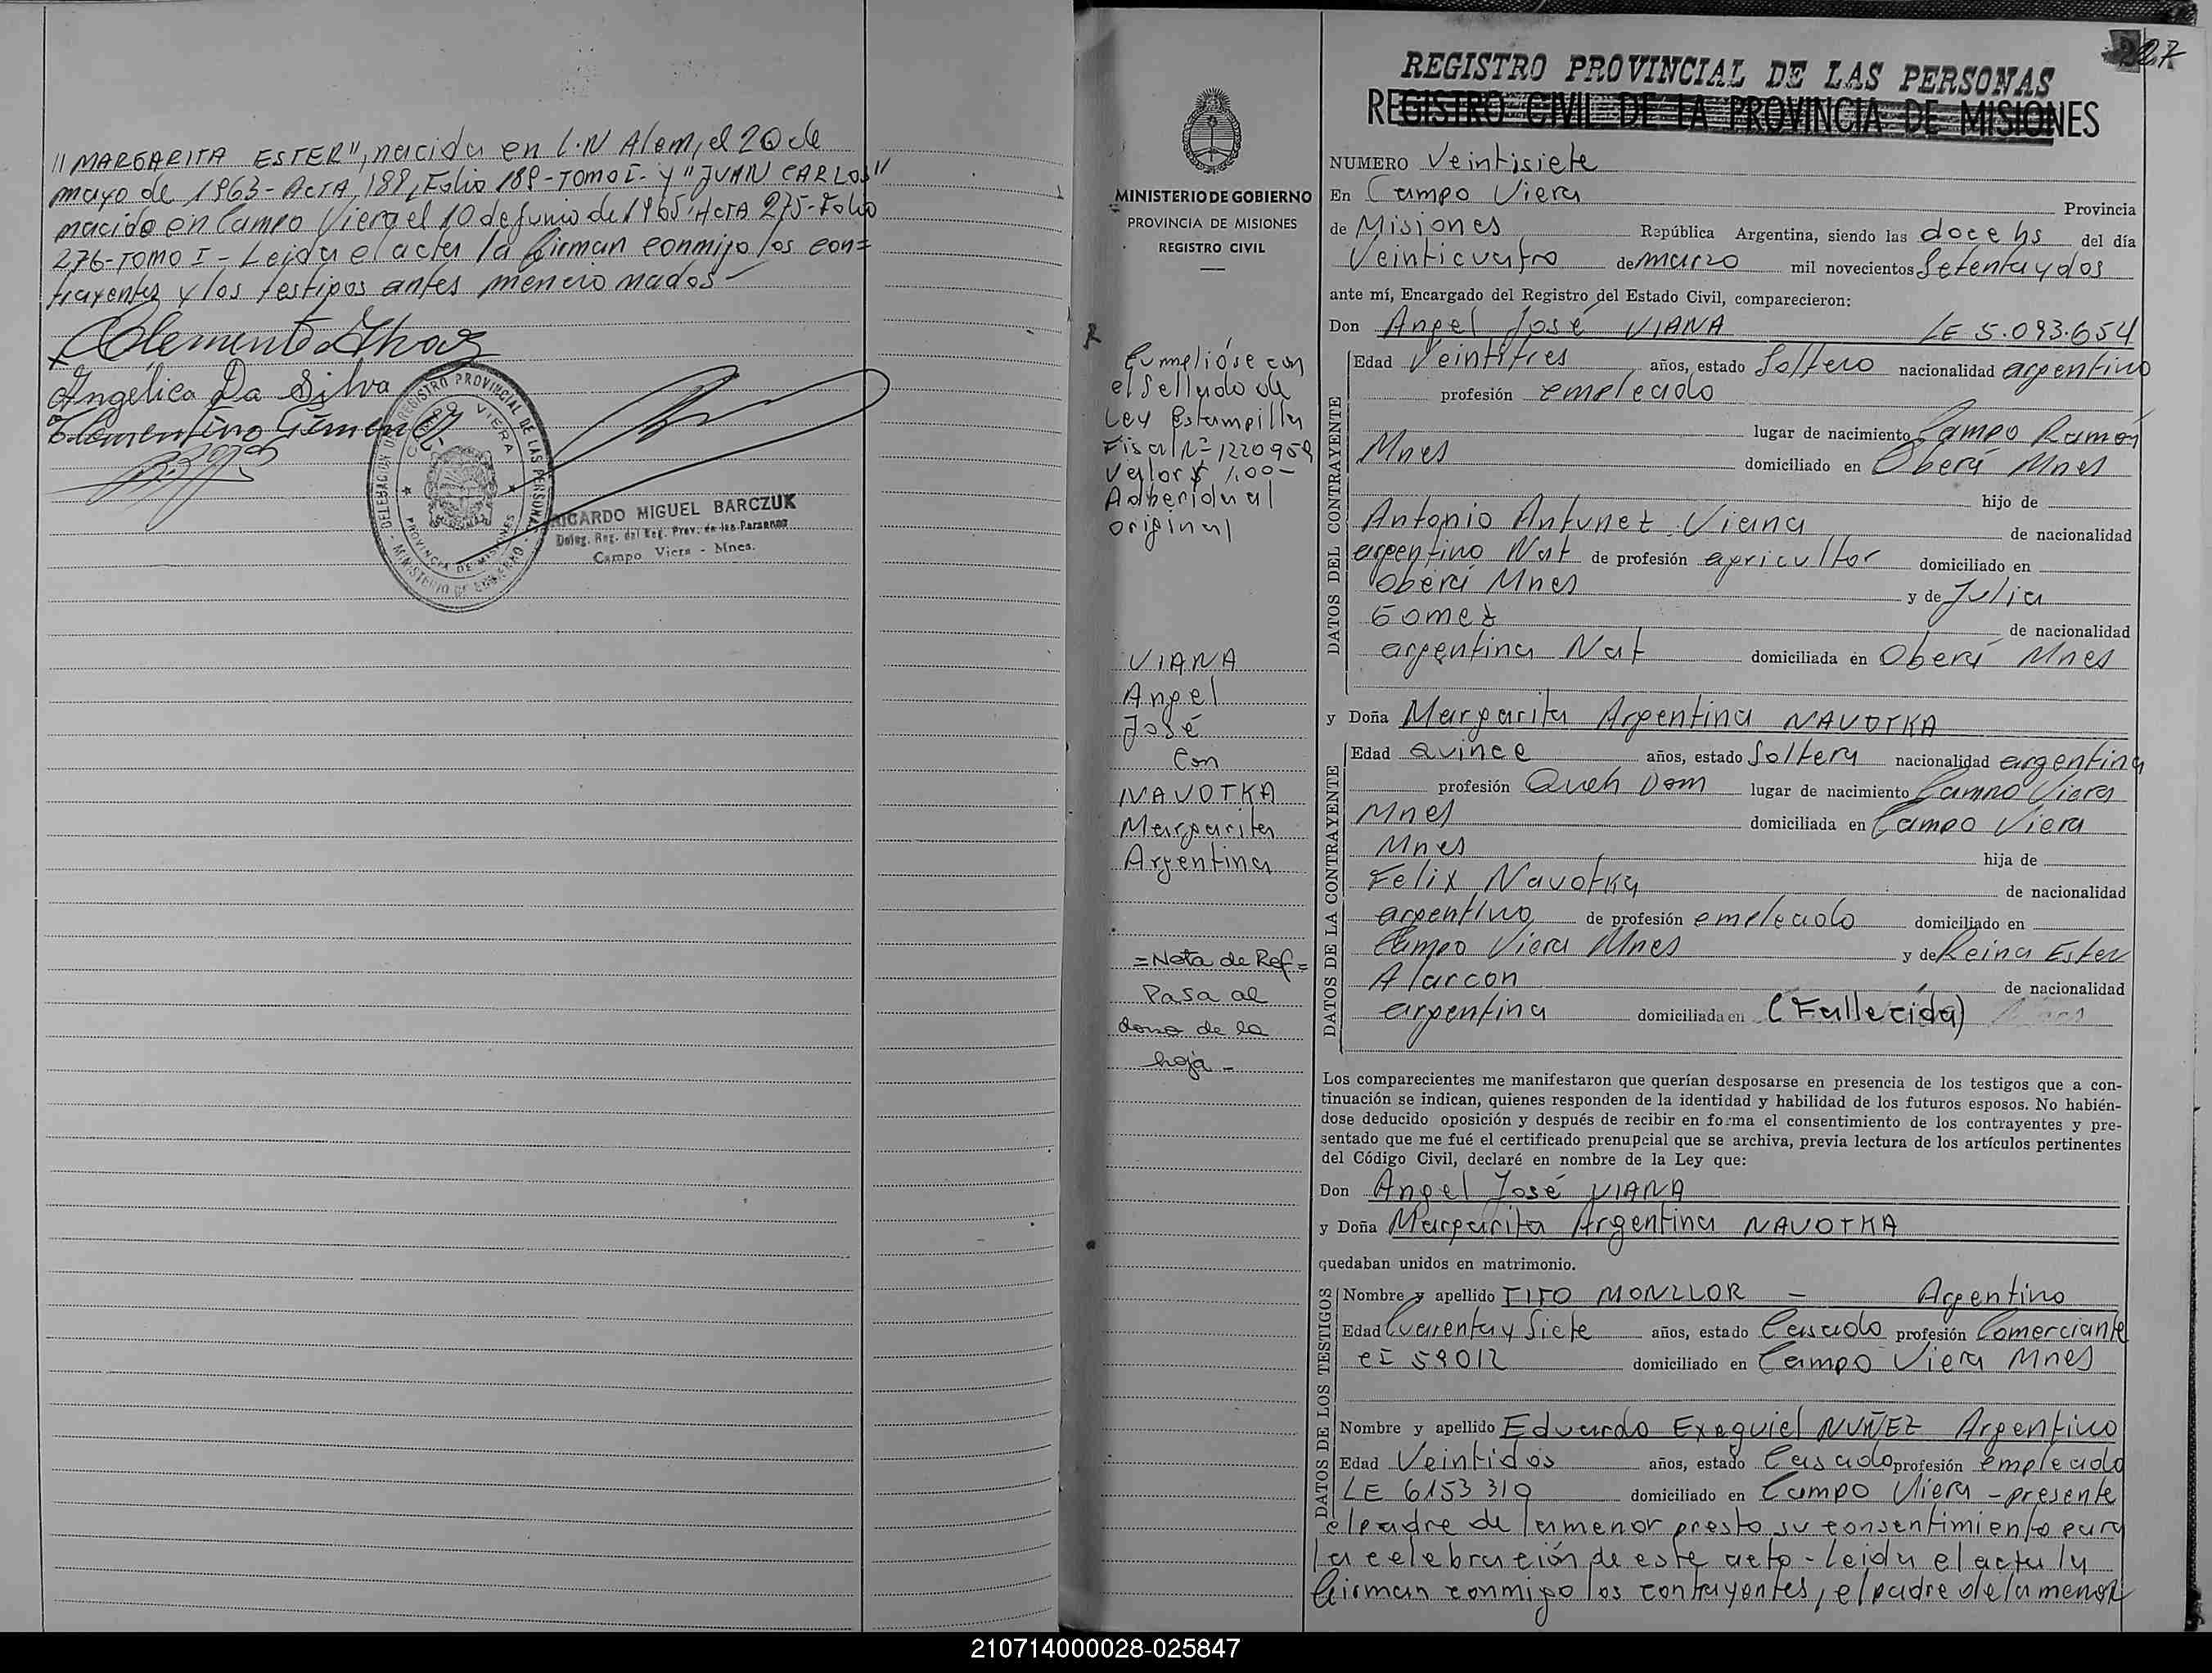 "MARGARITA ESTER", nacida en L.N Alem, el 20 de
mayo de 1963 - ACTA 188, Folio 189 - TOMO I - y "JUAN CARLOS"
nacido en Campo Viera el 10 de junio de 1965 - ACTA 275 - Folio
276 - TOMO I - Leida el acta la firman conmigo los con=
trayentes y los testigos antes mencionados -
Angélica Da Silva
REGISTRO PROVINCIAL DE LAS PERSONAS
CAMPO VIERA
PROVINCIA DE MISIONES
RICARDO MIGUEL BARCZUK
Deleg. Reg. del Reg. Prov. de las Personas
Campo Viera - Mnes.
MINISTERIO DE GOBIERNO
PROVINCIA DE MISIONES
REGISTRO CIVIL
Cumplióse con
el Sellado de
Ley Estampilla
Fiscal Nº 1220959
Valor $ 1.00 -
Adherida al
original
VIANA
Angel
José
Con
NAVOTKA
Margarita
Argentina
= Nota de Ref =
Pasa al
dorso de la
hoja -
227
REGISTRO PROVINCIAL DE LAS PERSONAS
REGISTRO CIVIL DE LA PROVINCIA DE MISIONES
NUMERO Veintisiete
En Campo Viera Provincia
de Misiones República Argentina, siendo las doce hs del día
Veinticuatro de marzo mil novecientos Setenta y dos
ante mí, Encargado del Registro del Estado Civil, comparecieron:
Don Angel José VIANA LE 5.093.654
DATOS DEL CONTRAYENTE
Edad Veintitres años, estado Soltero nacionalidad argentino
profesión empleado
lugar de nacimiento Campo Ramón
Mnes domiciliado en Oberá Mnes
hijo de
Antonio Antunez Viana de nacionalidad
argentino Nat de profesión agricultor domiciliado en
Oberá Mnes y de Julia
Gomez de nacionalidad
argentina Nat domiciliada en Oberá Mnes
y Doña Margarita Argentina NAVOTKA
DATOS DE LA CONTRAYENTE
Edad Quince años, estado Soltera nacionalidad argentina
profesión Queh Dom lugar de nacimiento Campo Viera
Mnes domiciliada en Campo Viera
Mnes hija de
Felix Navotka de nacionalidad
argentino de profesión empleado domiciliado en
Campo Viera Mnes y de Reina Ester
Alarcon de nacionalidad
argentina domiciliada en (Fallecida)
Los comparecientes me manifestaron que querían desposarse en presencia de los testigos que a con-
tinuación se indican, quienes responden de la identidad y habilidad de los futuros esposos. No habién-
dose deducido oposición y después de recibir en forma el consentimiento de los contrayentes y pre-
sentado que me fué el certificado prenupcial que se archiva, previa lectura de los artículos pertinentes
del Código Civil, declaré en nombre de la Ley que:
Don Angel José VIANA
y Doña Margarita Argentina NAVOTKA
quedaban unidos en matrimonio.
DATOS DE LOS TESTIGOS
Nombre y apellido TITO MONLLOR - Argentino
Edad Cuarenta y Siete años, estado Casado profesión Comerciante
CI 59012 domiciliado en Campo Viera Mnes
DATOS DE LOS TESTIGOS
Nombre y apellido Eduardo Exequiel NUÑEZ Argentino
Edad Veintidos años, estado Casado profesión empleado
LE 6153319 domiciliado en Campo Viera - presente
el padre de la menor presto su consentimiento para
la celebración de este acto - leida el acta la
firman conmigo los contrayentes, el padre de la menor
210714000028-025847